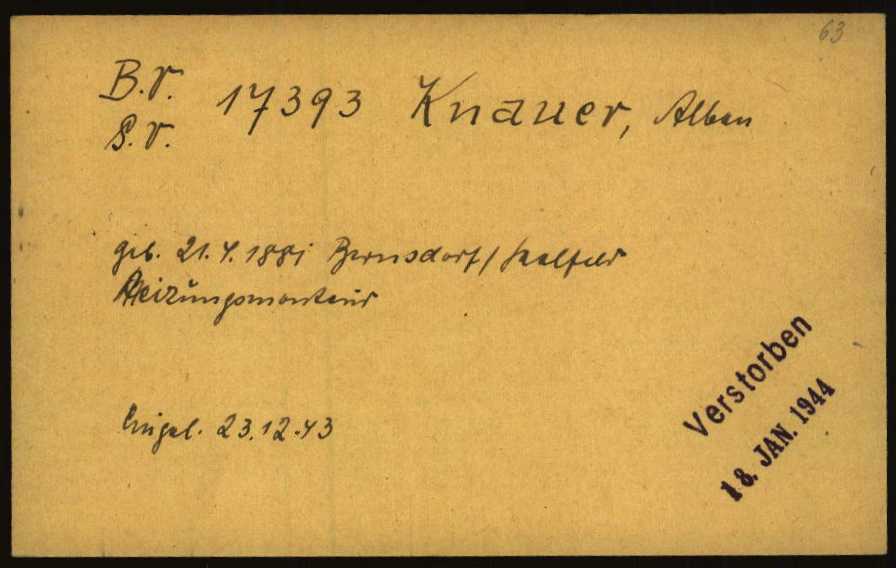 63
B.V. 17393 Knauer, Alban
S.V.
geb. 21.4.1881 Bernsdorf/Saalfeld
Heizungsmonteur
Eingel. 23.12.43
Verstorben
18. JAN. 1944